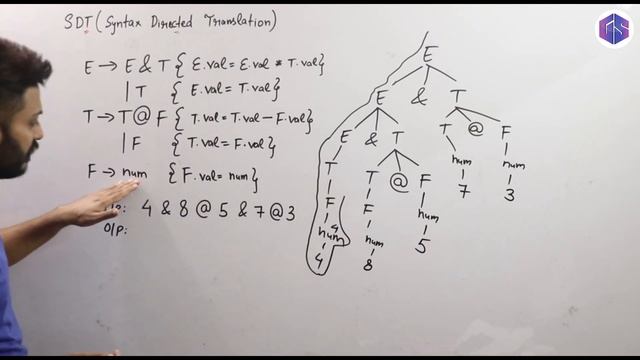 SDT (Syntax Directed Translation)
E → E & T { E.val = E.val * T.val}
| T { E.val = T.val}
T → T @ F { T.val = T.val - F.val}
| F { T.val = F.val}
F → num { F.val = num}
4 & 8 @ 5 & 7 @ 3
O/p:
E
E & T
E & T T @ F
T T @ F num num
F F num 7 3
num 4 num 5
4 8